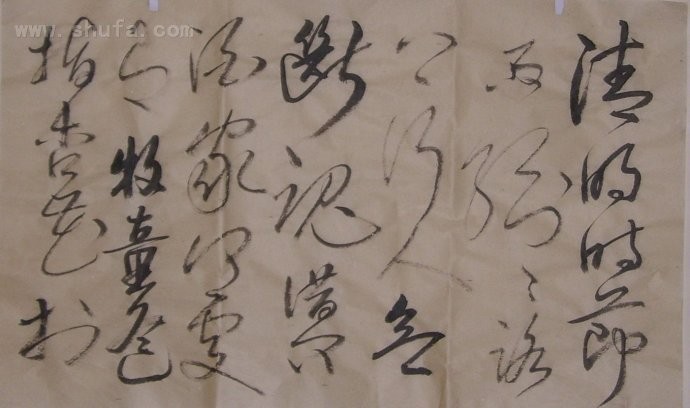 www.shufa.com
清明時節
雨紛々路
上行人欲
斷魂借問
酒家何處
有牧童遙
指杏花村